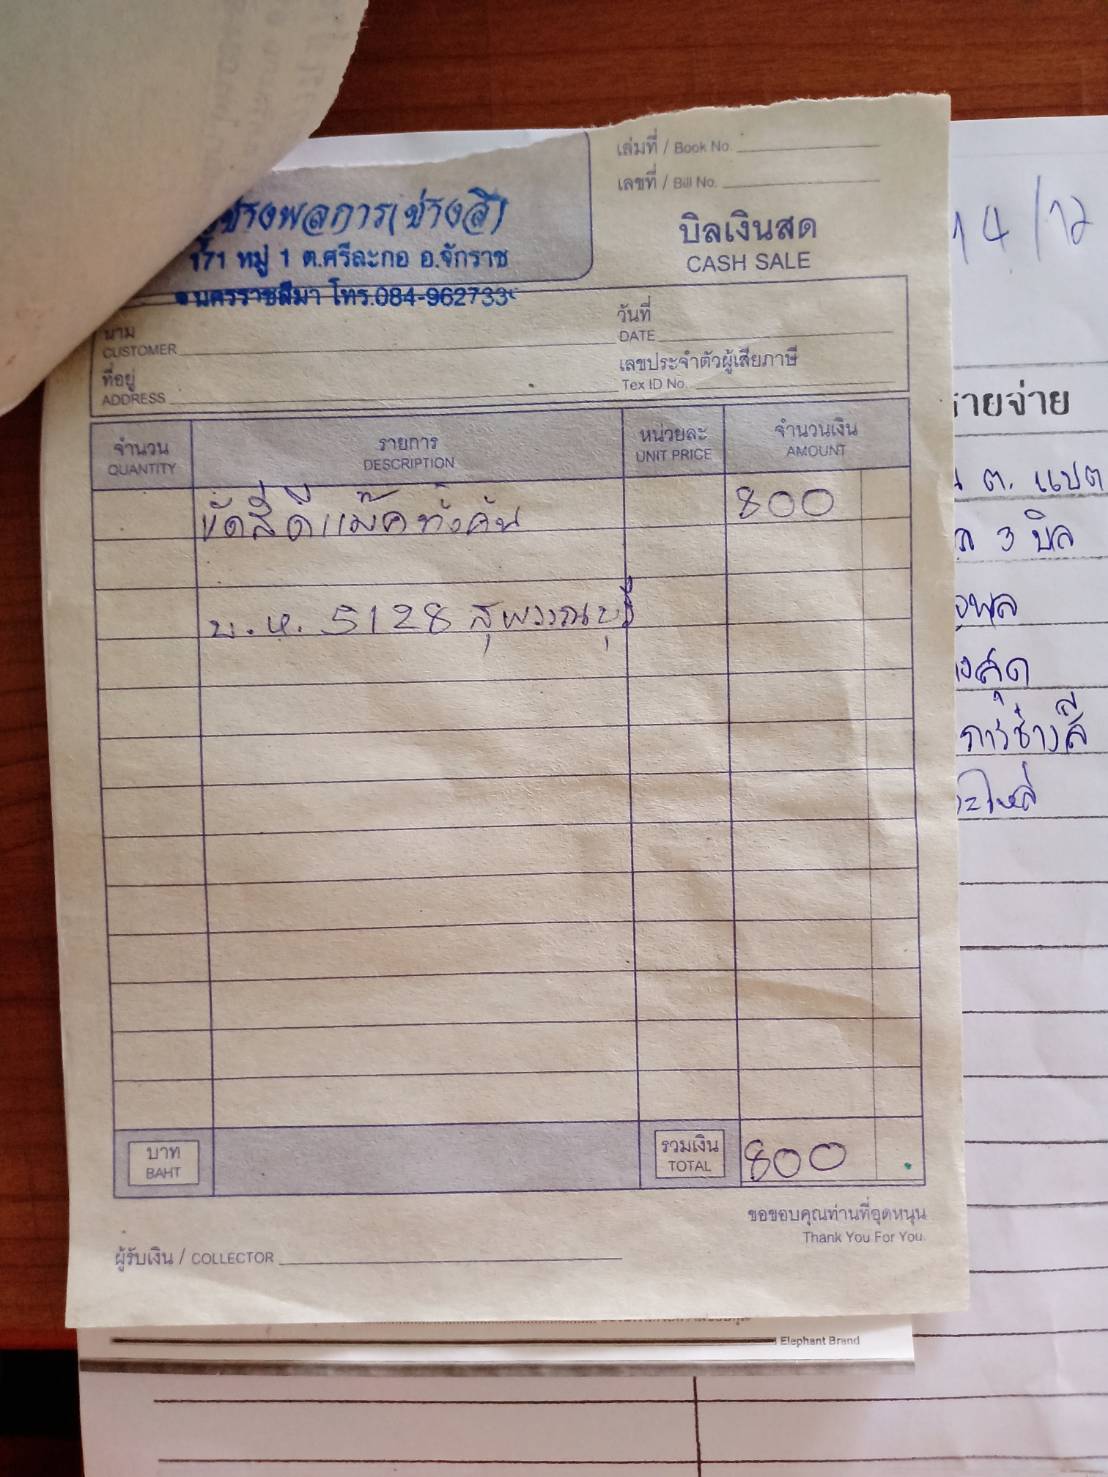 เล่มที่ / Book No.
เลขที่ / Bill No.
บิลเงินสด
CASH SALE
ช่างพลการ(ช่างสี)
171 หมู่ 1 ต.ศรีละกอ อ.จักราช
นครราชสีมา โทร.084-962733
นาม
CUSTOMER
วันที่
DATE
ที่อยู่
ADDRESS
เลขประจำตัวผู้เสียภาษี
Tex ID No.
จำนวน
QUANTITY
รายการ
DESCRIPTION
หน่วยละ
UNIT PRICE
จำนวนเงิน
AMOUNT
ขัดสีดีแม๊คทั้งคัน 800
บ.ห. 5128 สุพรรณบุรี
บาท
BAHT
รวมเงิน
TOTAL
800
ขอขอบคุณท่านที่อุดหนุน
Thank You For You.
ผู้รับเงิน / COLLECTOR
Elephant Brand
14/12
รายจ่าย
ต. แปต
3 บิล
การช่างสี